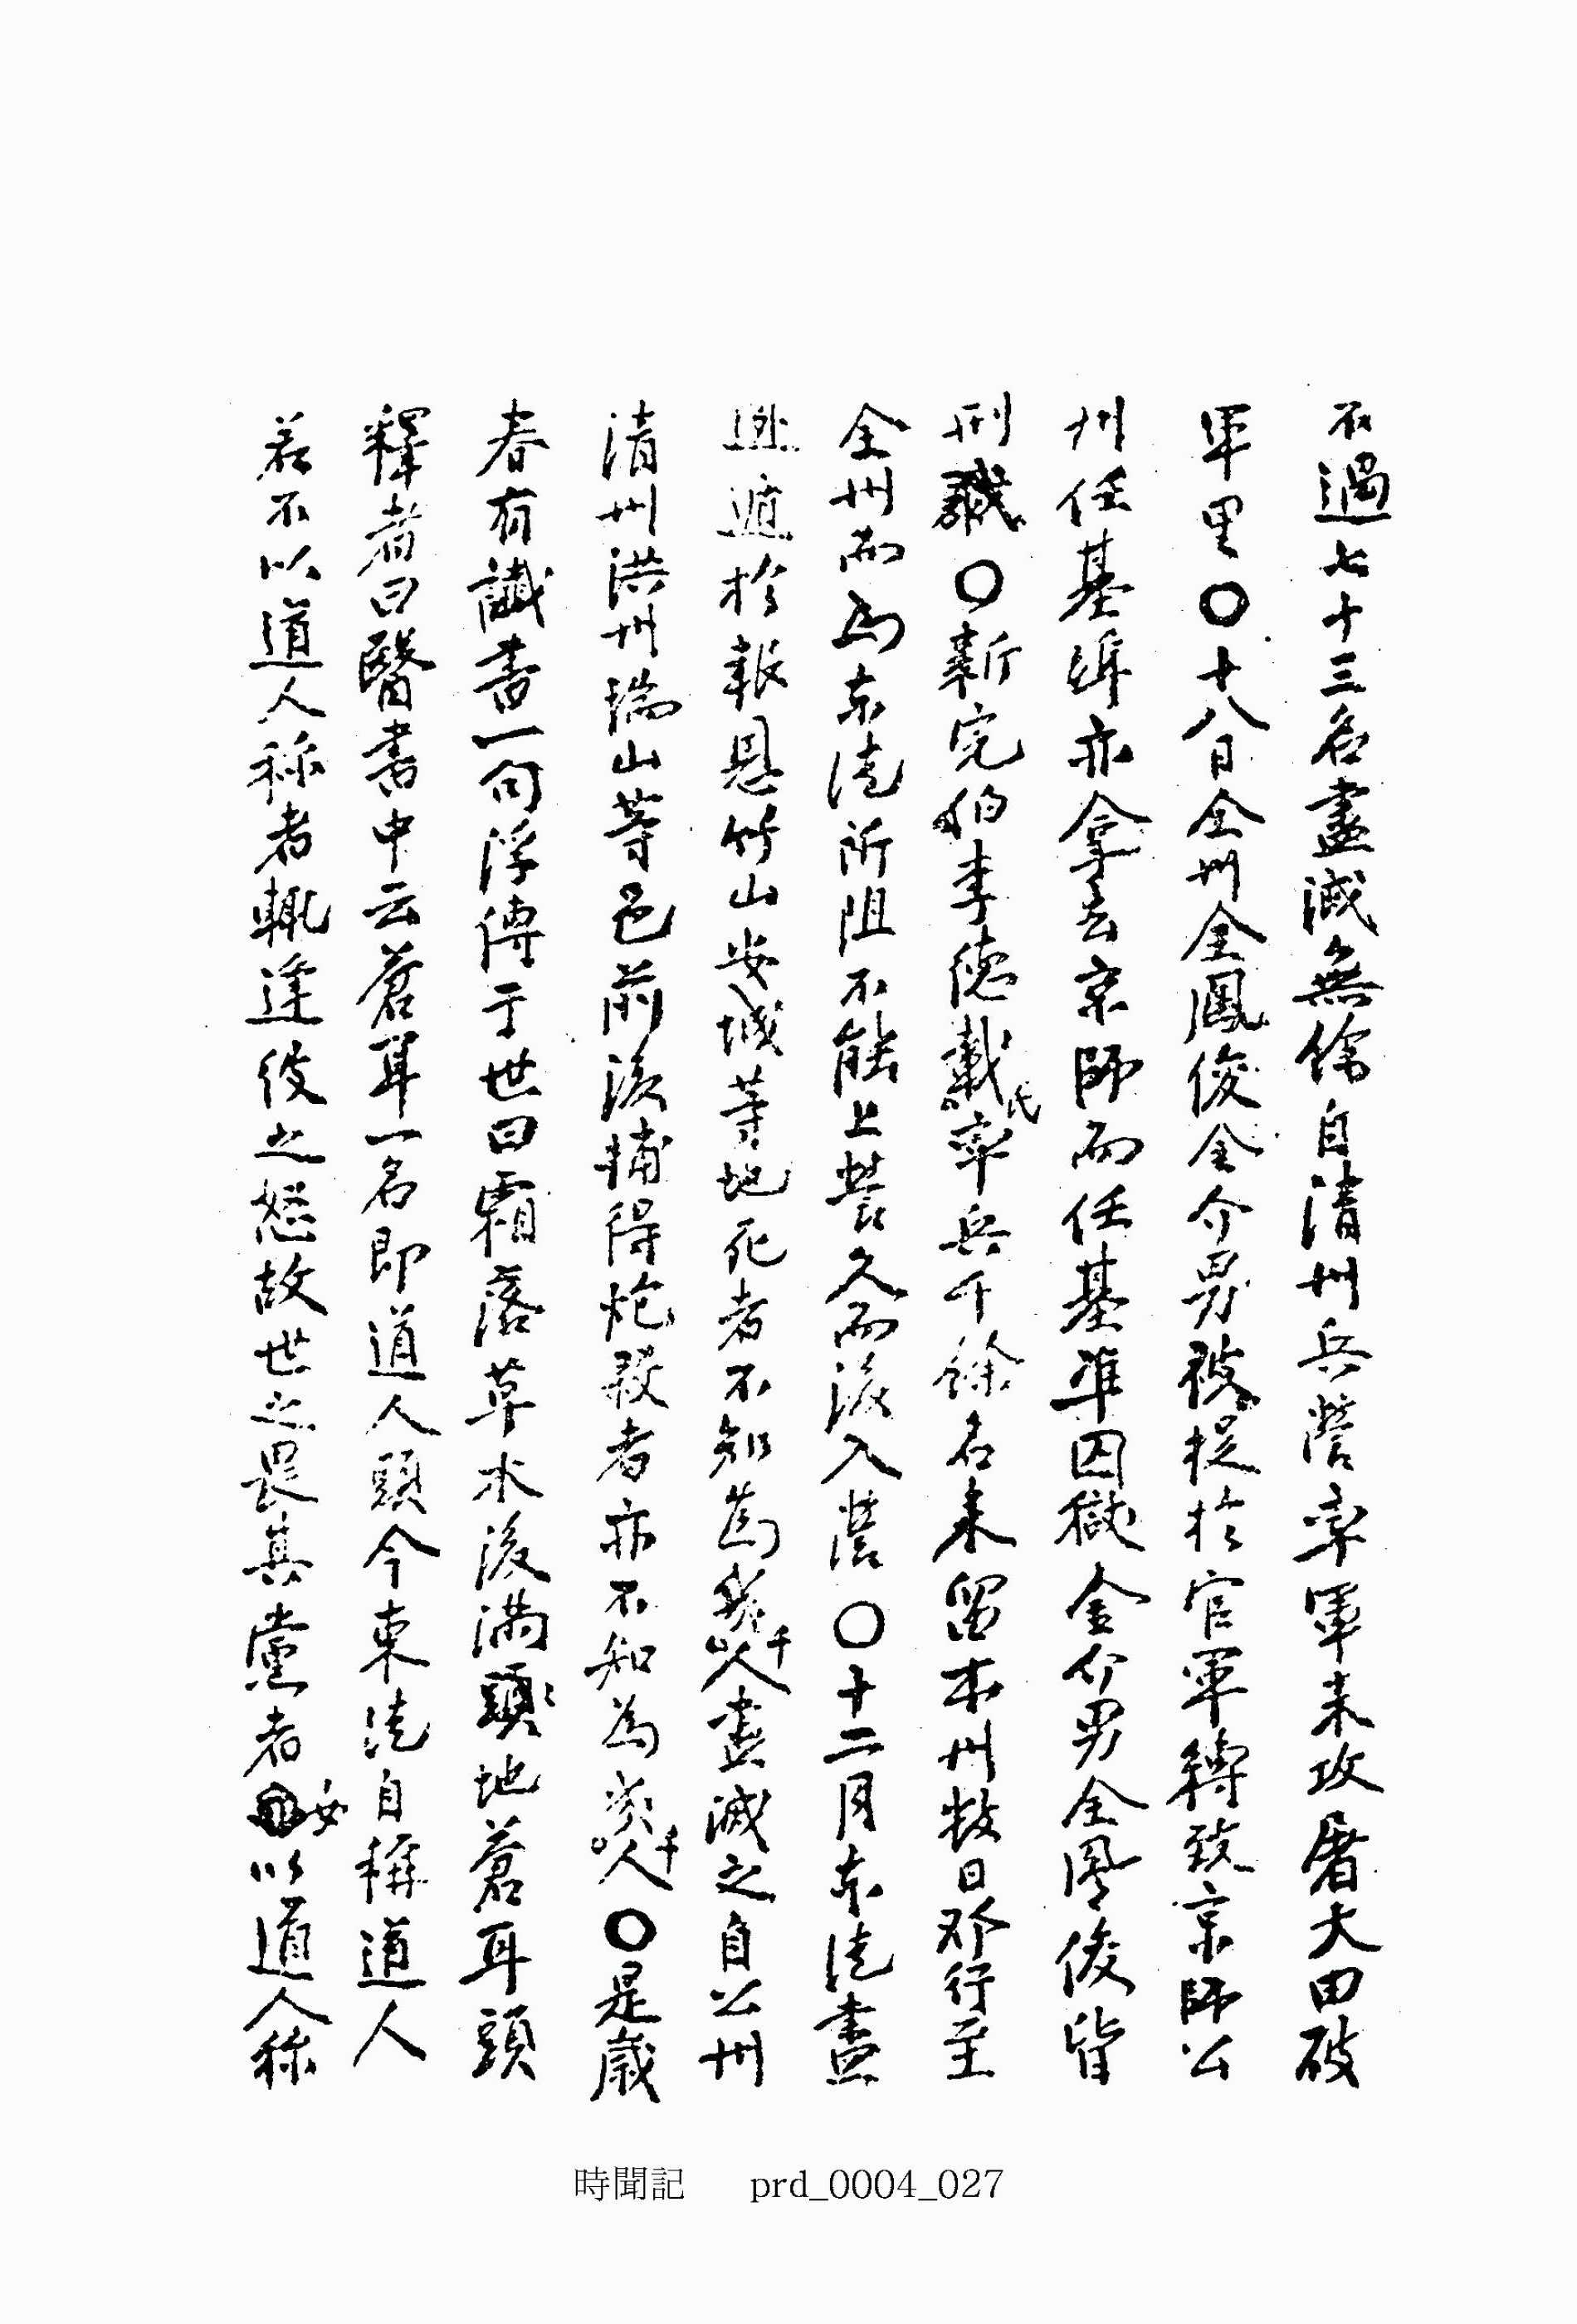 不過七十三名盡滅無餘自清州兵營率軍来攻屠大田破
軍里〇十八日全州全鳳俊全介男被捉於官軍縛致京師公
州任基準亦拿去京師而任基準囚獄金介男全鳳俊皆
刑馘〇新完伯李德載氏率兵千餘名来留本州数日邓行至
全州而為东徒所阻不能上營久而後入營〇十二月东徒盡
逃遁於報恩竹山安城等地死者不知為幾千人盡滅之自公州
清州洪州瑞山等邑前後捕得炮殺者亦不知為幾千人〇是歲
春有讖書一句浮傳于世曰霜落草木後滿頭地蒼耳頭
釋者曰醫書中云蒼耳一名即道人頭今東徒自稱道人
若不以道人称者輒逢彼之怒故世之畏其黨者必以道人称
時聞記 prd_0004_027